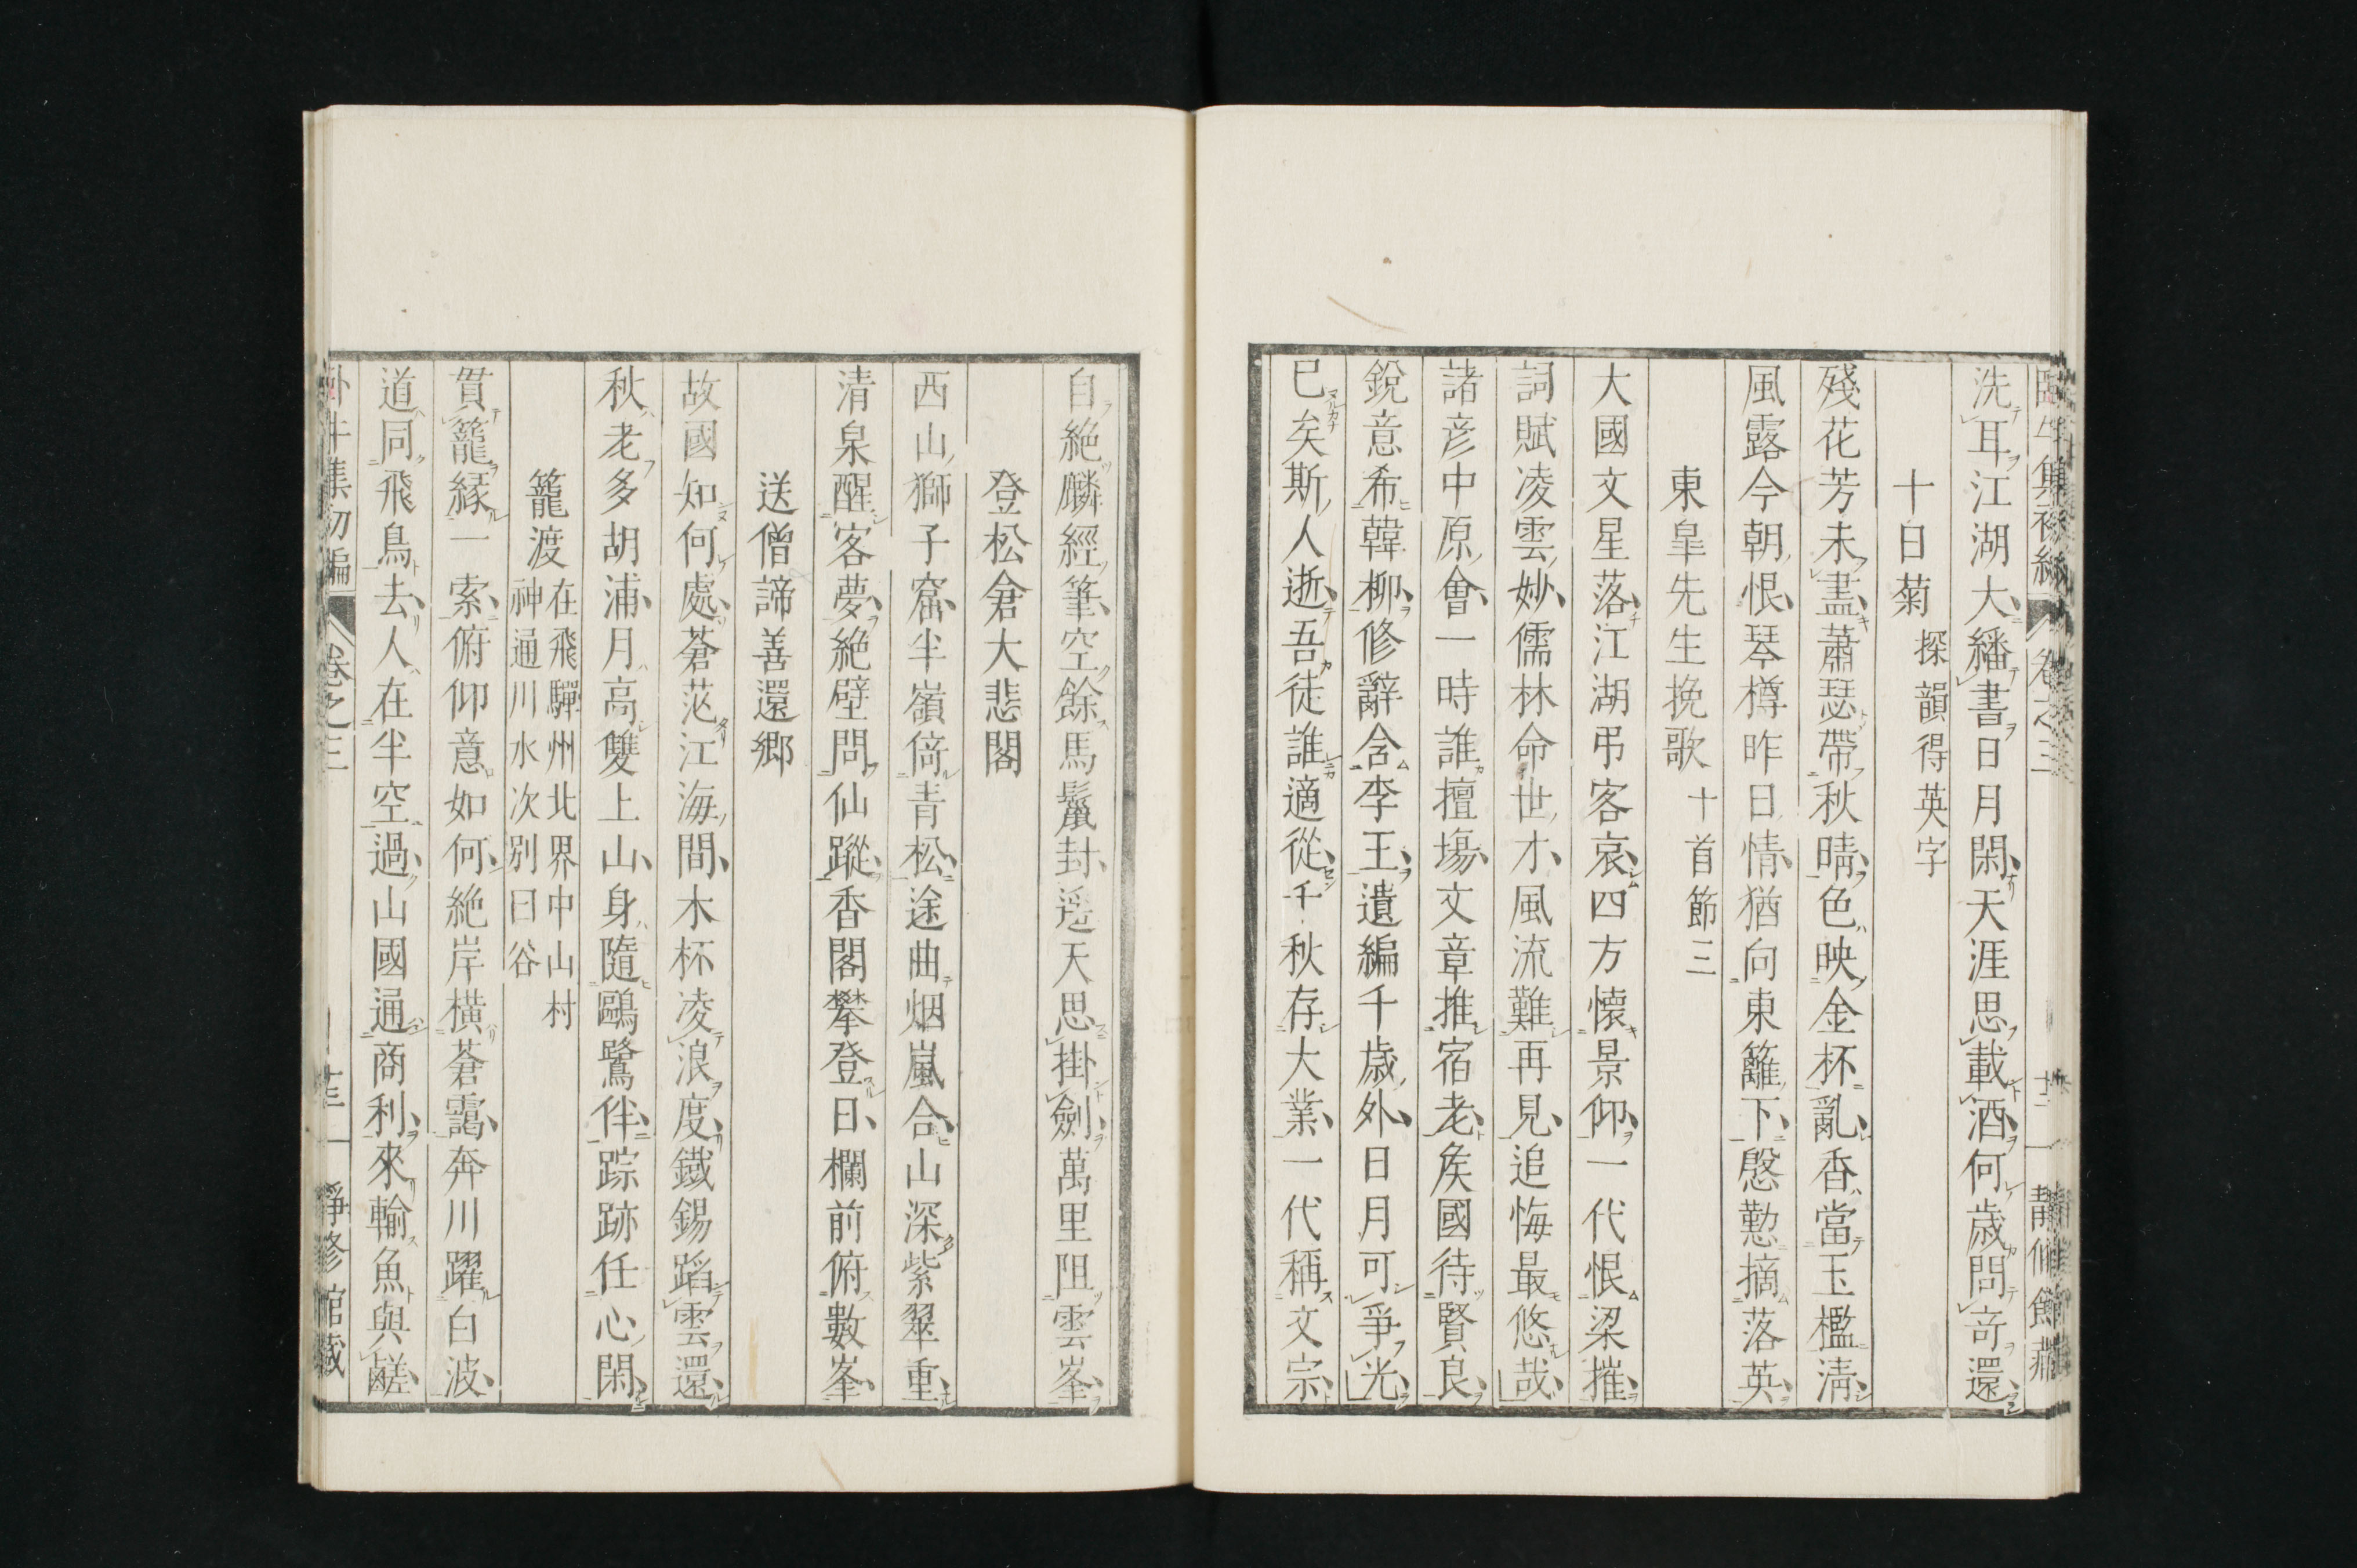 洗耳江湖大繙書日月閑天涯思載酒何歳問奇還
十日菊 探韻得英字
殘花芳未盡蕭瑟帶秋晴色映金杯亂香當玉檻清
風露今朝恨琴樽昨日情猶向東籬下慇懃摘落英
東皐先生挽歌 十首節三
大國文星落江湖弔客哀四方懷景仰一代恨梁摧
詞賦凌雲妙儒林命世才風流難再見追悔最悠哉
諸彦中原會一時誰擅場文章推宿老矦國待賢良
銳意希韓柳修辭含李王遺編千歳外日月可爭光
已矣斯人逝吾徒誰適從千秋存大業一代稱文宗
自絶麟經筆空餘馬鬣封遥天思掛劍萬里阻雲峯
登松倉大悲閣
西山獅子窟半嶺倚青松途曲烟嵐合山深紫翠重
清泉醒客夢絶壁問仙蹤香閣攀登日欄前俯數峯
送僧諦善還郷
故國知何處蒼茫江海間木杯凌浪度鐵錫蹈雲還
秋老多胡浦月高雙上山身隨鷗鷺伴踪跡任心閑
籠渡 在飛驒州北界中山村
神通川水次別曰谷
貫籠縁一索俯仰意如何絶岸橫蒼靄奔川躍白波
道同飛鳥去人在半空過山國通商利來輸魚與鹺
卧牛集初編 卷之三 静修館藏